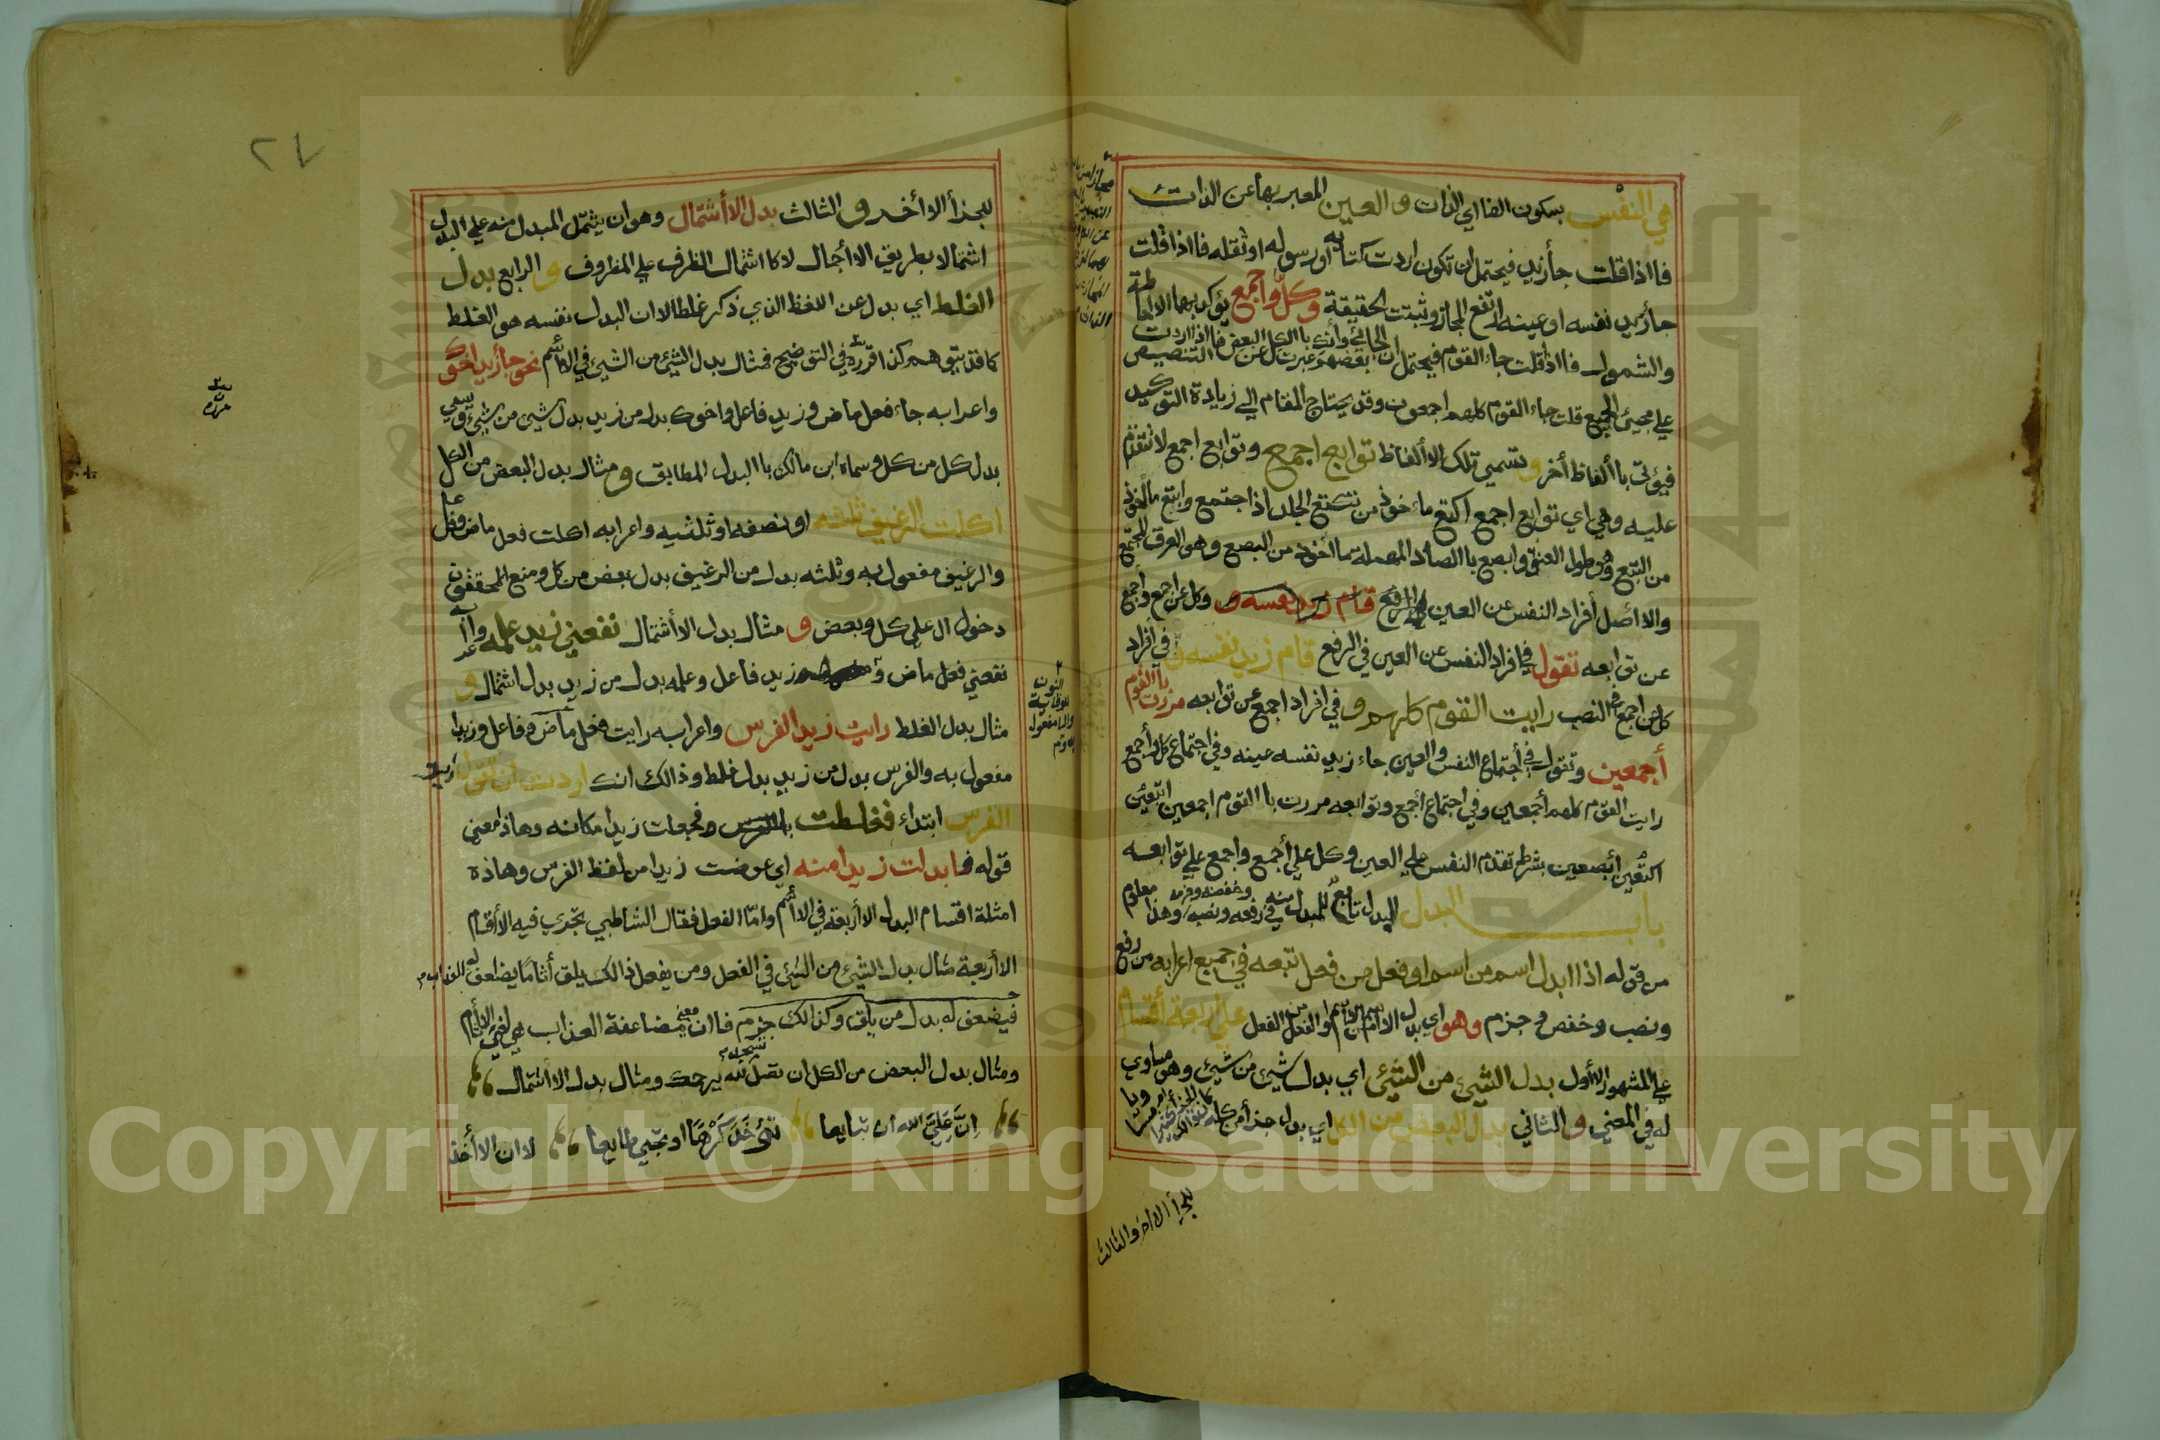 هي النفْس بسكون الفا اي الذات و العين المعبر بها عن الذات
فااذا قلت جأ زيد فيحتمل ان تكون اردت كتابه او رسوله او ثقله فااذا قلت
جأ زيد نفسه او عينه ارتفع المجاز وثبتت الحقيقة وكلّ واجمع يؤكد بهما الاحاطة
والشمول فااذا قلت جاء القوم فيحتمل ان الجائي بعضهم وأنك عبرت باالكل عن البعض فااذا اردت التنصيص
علي مجيئ الجميع قلت جاء القوم كلهم اجمعون وقد يحتاج المقام الي زيادة التوكيد
فيؤتي باألفاظ أخر و تسمي تلك الاألفاظ توابع اجمع وتوابع اجمع لا تتقدم
عليه وهي اي توابع اجمع اكتع مأخوذ من تكتع الجلد اذا اجتمع وابتع مأخوذ
من البتع وهو طول العنق وابصع باالصاد المهملة مأخوذ من البصع وهو العرق المجتمع
والاأصل أفراد النفس عن العين في الرفع قام زيد نفسه و وكل عن اجمع وأجمع
عن توابعه تقول في افراد النفس عن العين في الرفع قام زيد نفسه و في افراد
كل عن اجمع في النصب رايت القوم كلهم و في افراد اجمع عن توابعه مررت باالقوم
أجمعين وتقول في أجتماع النفس والعين جاء زيد نفسه عينه وفي اجتماع كل وأجمع
رايت القوم كلهم أجمعين وفي اجتماع أجمع وتوابعه مررت باالقوم اجمعين ابتعين
اكتعين أبصعين بشرط تقدم النفس علي العين وكل علي أجمع واجمع علي توابعه
باب البدل البدل تابع للمبدل منه في رفعه ونصبه وخفضه وجزمه وهذا معلوم
من قوله اذا ابدل اسم من اسم او فعل من فعل تبعه في جميع اعرابه من رفع
ونصب وخفض وجزم وهو اي بدل الاسم من الاسم والفعل من الفعل علي اربعة أقسام
علي المشهور الاأول بدل الشيئ من الشيئ اي بدل شيئ من شيئ وهو مساوي
له في المعني و الثاني بدل البعض من الكل اي بدل جذأ من كله
للجذأ الاأخر والثالث
٢٧
للجذأ الاأخر و الثالث بدل الاأشتمال وهو ان يشتمل المبدل منه علي البدل
اشتمالا بطريق الاأجمال لا كااشتمال الظرف علي المظروف و الرابع بدل
الغلط اي بدل عن اللفظ الذي ذكر غلطا لاان البدل نفسه هو الغلط
كما قد يتوهم كذا قرره في التوضيح فمثال بدل الشيئ من الشيئ في الاأسم نحو جأ زيد اخوك
واعرابه جاء فعل ماض وزيد فاعل واخوك بدل من زيد بدل شيئ من شيئ ويسمي
بدل كل من كل وسماه ابن مالك باالبدل المطابق و مثال بدل البعض من الكل
اكلت الرغيف ثلثه او نصفه او ثلثيه واعرابه اكلت فعل ماض وفاعل
والرغيف مفعول به وثلثه بدل من الرغيف بدل بعض من كل ومنع المحققون
دخول ال علي كل وبعض و مثال بدل الاأشتمال نفعني زيد علمه
نفعني فعل ماض و زيد فاعل وعلمه بدل من زيد بدل اشتمال و
مثال بدل الغلط رايت زيدا الفرس واعرابه رايت فعل ماض وفاعل وزيدا
مفعول به والفرس بدل من زيد بدل غلط وذالك انك اردت ان تقول
الفرس ابتداء فغلطت فجعلت زيدا مكانه وهاذا معني
قوله فابدلت زيدا منه اي عوضت زيدا من لفظ الفرس وهاذه
امثلة اقسام البدل الاأربعة في الاأسم وامّا الفعل فقال الشاطبي تجري فيه الاأقسام
الاأربعة مثال بدل الشيئ من الشيئ في الفعل ومن يفعل ذالك يلق أثاما يضاعف له العذاب
فيضاعف له بدل من يلق وكذالك جزم فاان معني مضاعفة العذاب هي لقي الاأثام
ومثال بدل البعض من الكل ان تصل تسجد لله يرحمك ومثال بدل الاأشتمال
إنّ عَلَيَّ الله ان تبايعا تؤخذ كَرْهًا او تجيئ طايعا لاان الاأخذ
النون
للوقاية
واليا مفعول
به